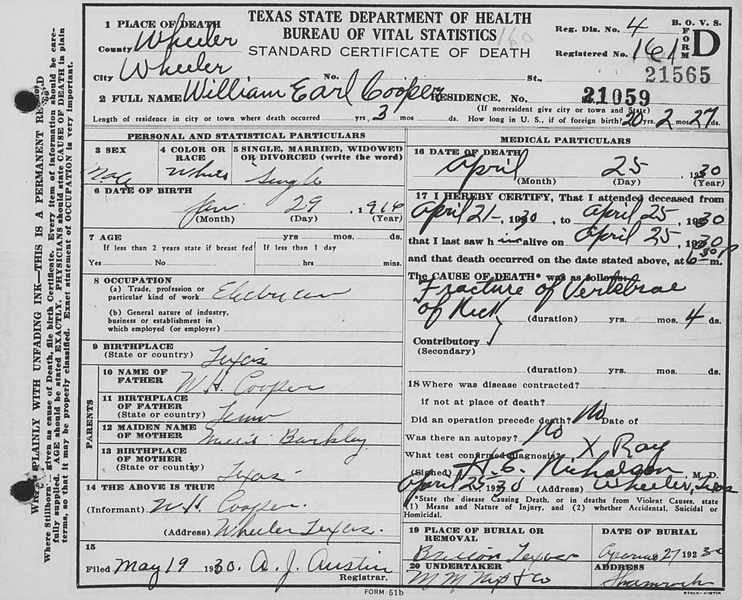 TEXAS STATE DEPARTMENT OF HEALTH
BUREAU OF VITAL STATISTICS
STANDARD CERTIFICATE OF DEATH
Reg. Dis. No. 4
B. O. V. S.
FORM D
Registered No. 161
21565
1 PLACE OF DEATH
County Wheeler
City Wheeler No. St.
2 FULL NAME William Earl Cooper RESIDENCE. No. 21059
(If nonresident give city or town and State)
Length of residence in city or town where death occurred yrs. 3 mos. ds. How long in U. S., if of foreign birth? 20 yrs. 2 mos. 27 ds.
WRITE PLAINLY WITH UNFADING INK—THIS IS A PERMANENT RECORD
Where Stillborn given as cause of Death, file birth Certificate. Every item of information should be carefully supplied. AGE should be stated EXACTLY. PHYSICIANS should state CAUSE OF DEATH in plain terms, so that it may be properly classified. Exact statement of OCCUPATION is very important.
PERSONAL AND STATISTICAL PARTICULARS
3 SEX
4 COLOR OR RACE White
5 SINGLE, MARRIED, WIDOWED OR DIVORCED (write the word)
Single
6 DATE OF BIRTH
Jan. 29 191
(Month) (Day) (Year)
7 AGE yrs. mos. ds.
If less than 2 years state if breast fed If less than 1 day
Yes No hrs. mins.
8 OCCUPATION
(a) Trade, profession or particular kind of work
(b) General nature of industry, business or establishment in which employed (or employer)
9 BIRTHPLACE
(State or country) Texas
PARENTS
10 NAME OF FATHER W. H. Cooper
11 BIRTHPLACE OF FATHER
(State or country) Tenn
12 MAIDEN NAME OF MOTHER Barkley
13 BIRTHPLACE OF MOTHER
(State or country) Texas
14 THE ABOVE IS TRUE
(Informant) W. H. Cooper.
(Address) Wheeler Texas.
15
Filed May 19 1930. A. J. Austin
Registrar.
MEDICAL PARTICULARS
16 DATE OF DEATH
April 25 1930
(Month) (Day) (Year)
17 I HEREBY CERTIFY, That I attended deceased from
April 21- 1930, to April 25, 1930
that I last saw him alive on April 25, 1930
and that death occurred on the date stated above, at 6 30 P m.
The CAUSE OF DEATH* was as follows:
Fracture of Vertebrae
of Neck (duration) yrs. mos. 4 ds.
Contributory
(Secondary) (duration) yrs. mos. ds.
18 Where was disease contracted?
if not at place of death?
Did an operation precede death? No Date of
Was there an autopsy? No
What test confirmed diagnosis? X Ray
(Signed) H. E. Nicholson M. D.
April 25 1930 (Address) Wheeler, Texas
*State the disease Causing Death, or in deaths from Violent Causes, state (1) Means and Nature of Injury, and (2) whether Accidental, Suicidal or Homicidal.
19 PLACE OF BURIAL OR REMOVAL
DATE OF BURIAL
Texas 27 1930
20 UNDERTAKER
ADDRESS
Shamrock
FORM 51b